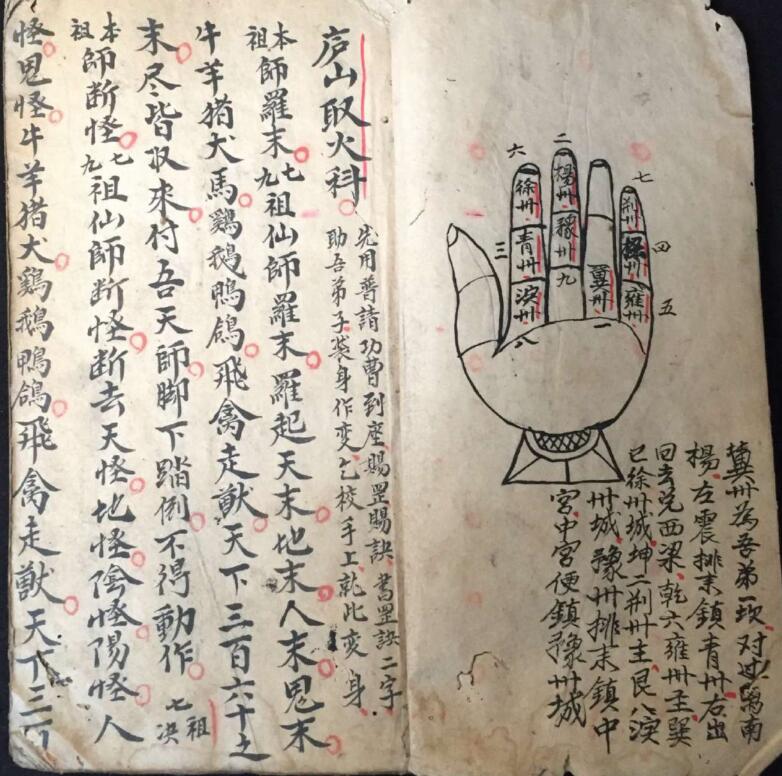 七
荆州
州
四
雍州
五
冀州
一
二
楊州
豫州
九
六
徐州
青州
三
演州
八
冀州為吾弟一坎对过离南
楊左震排末鎮青州右出
回去兑西梁乾六雍州主巽
巳徐州城坤二荆州主艮八演
州城豫州排末鎮中
宮中宮便鎮豫州城
庐山取火科
先用普請功曹到座賜罡賜訣書罡訣二字
助吾弟子裝身作变乞校手工乾比变身
本祖師羅末七九祖仙師羅末羅起天末地末人末鬼末
牛羊猪犬馬鷄鵝鴨鴿飛禽走獸天下三百六十之
末尽皆收來付吾天師脚下踏倒不得動作祖七决
本祖師断怪七九祖仙師断怪断去天怪地怪陰怪陽怪人
怪鬼怪牛羊猪犬鷄鵝鴨鴿飛禽走獸天下三百